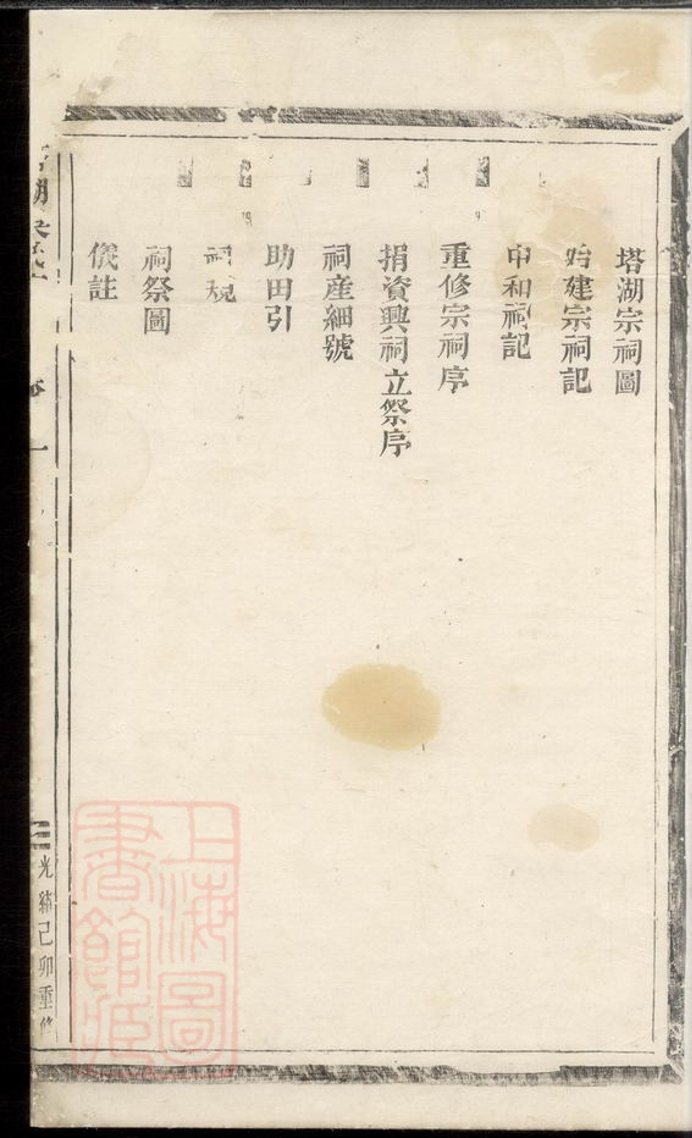 塔湖宗祠圖
始建宗祠記
中和祠記
重修宗祠序
捐資興祠立祭序
祠產細號
助田引
祠規
祠祭圖
儀註
湖
一
光緒己卯重修
上海圖
書館藏